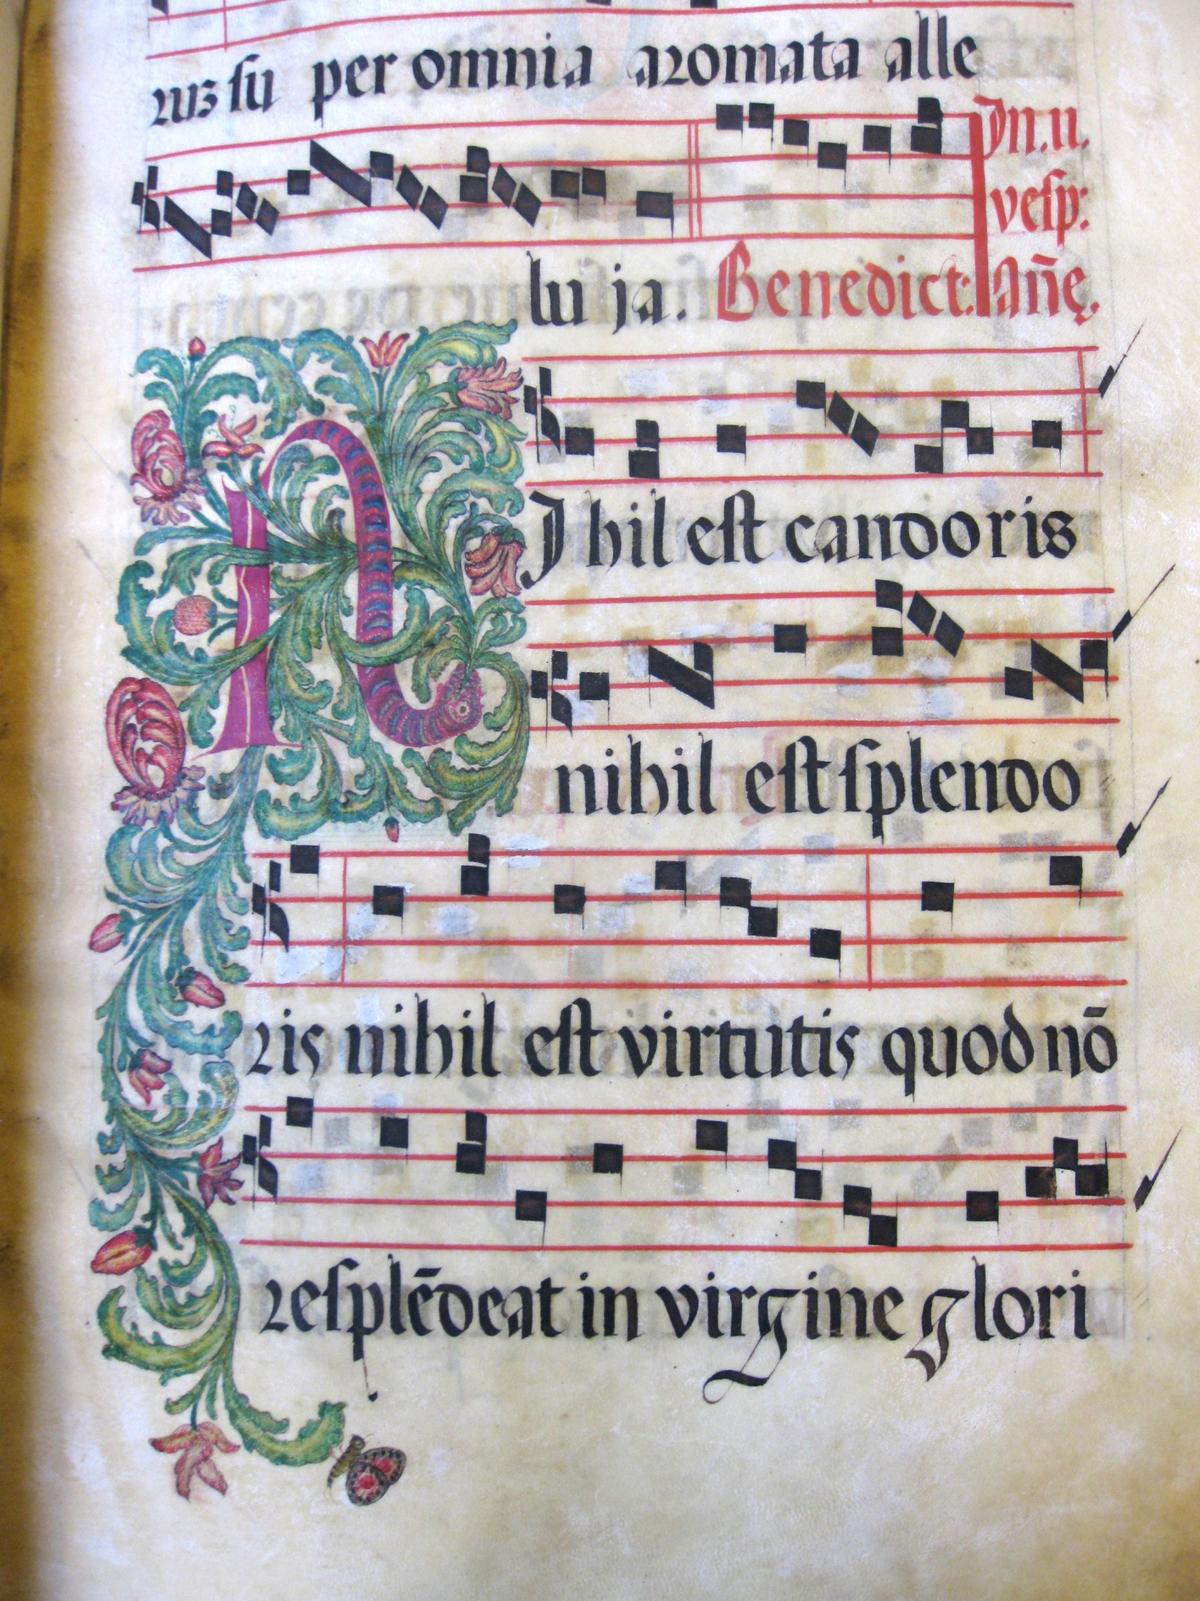 rus su per omnia aromata alle
In.ii.
vesp:
lu ja. Benedict: Añę.
NIhil est candoris
nihil est splendo
ris nihil est virtutis quod nō
resplēdeat in virgine glori